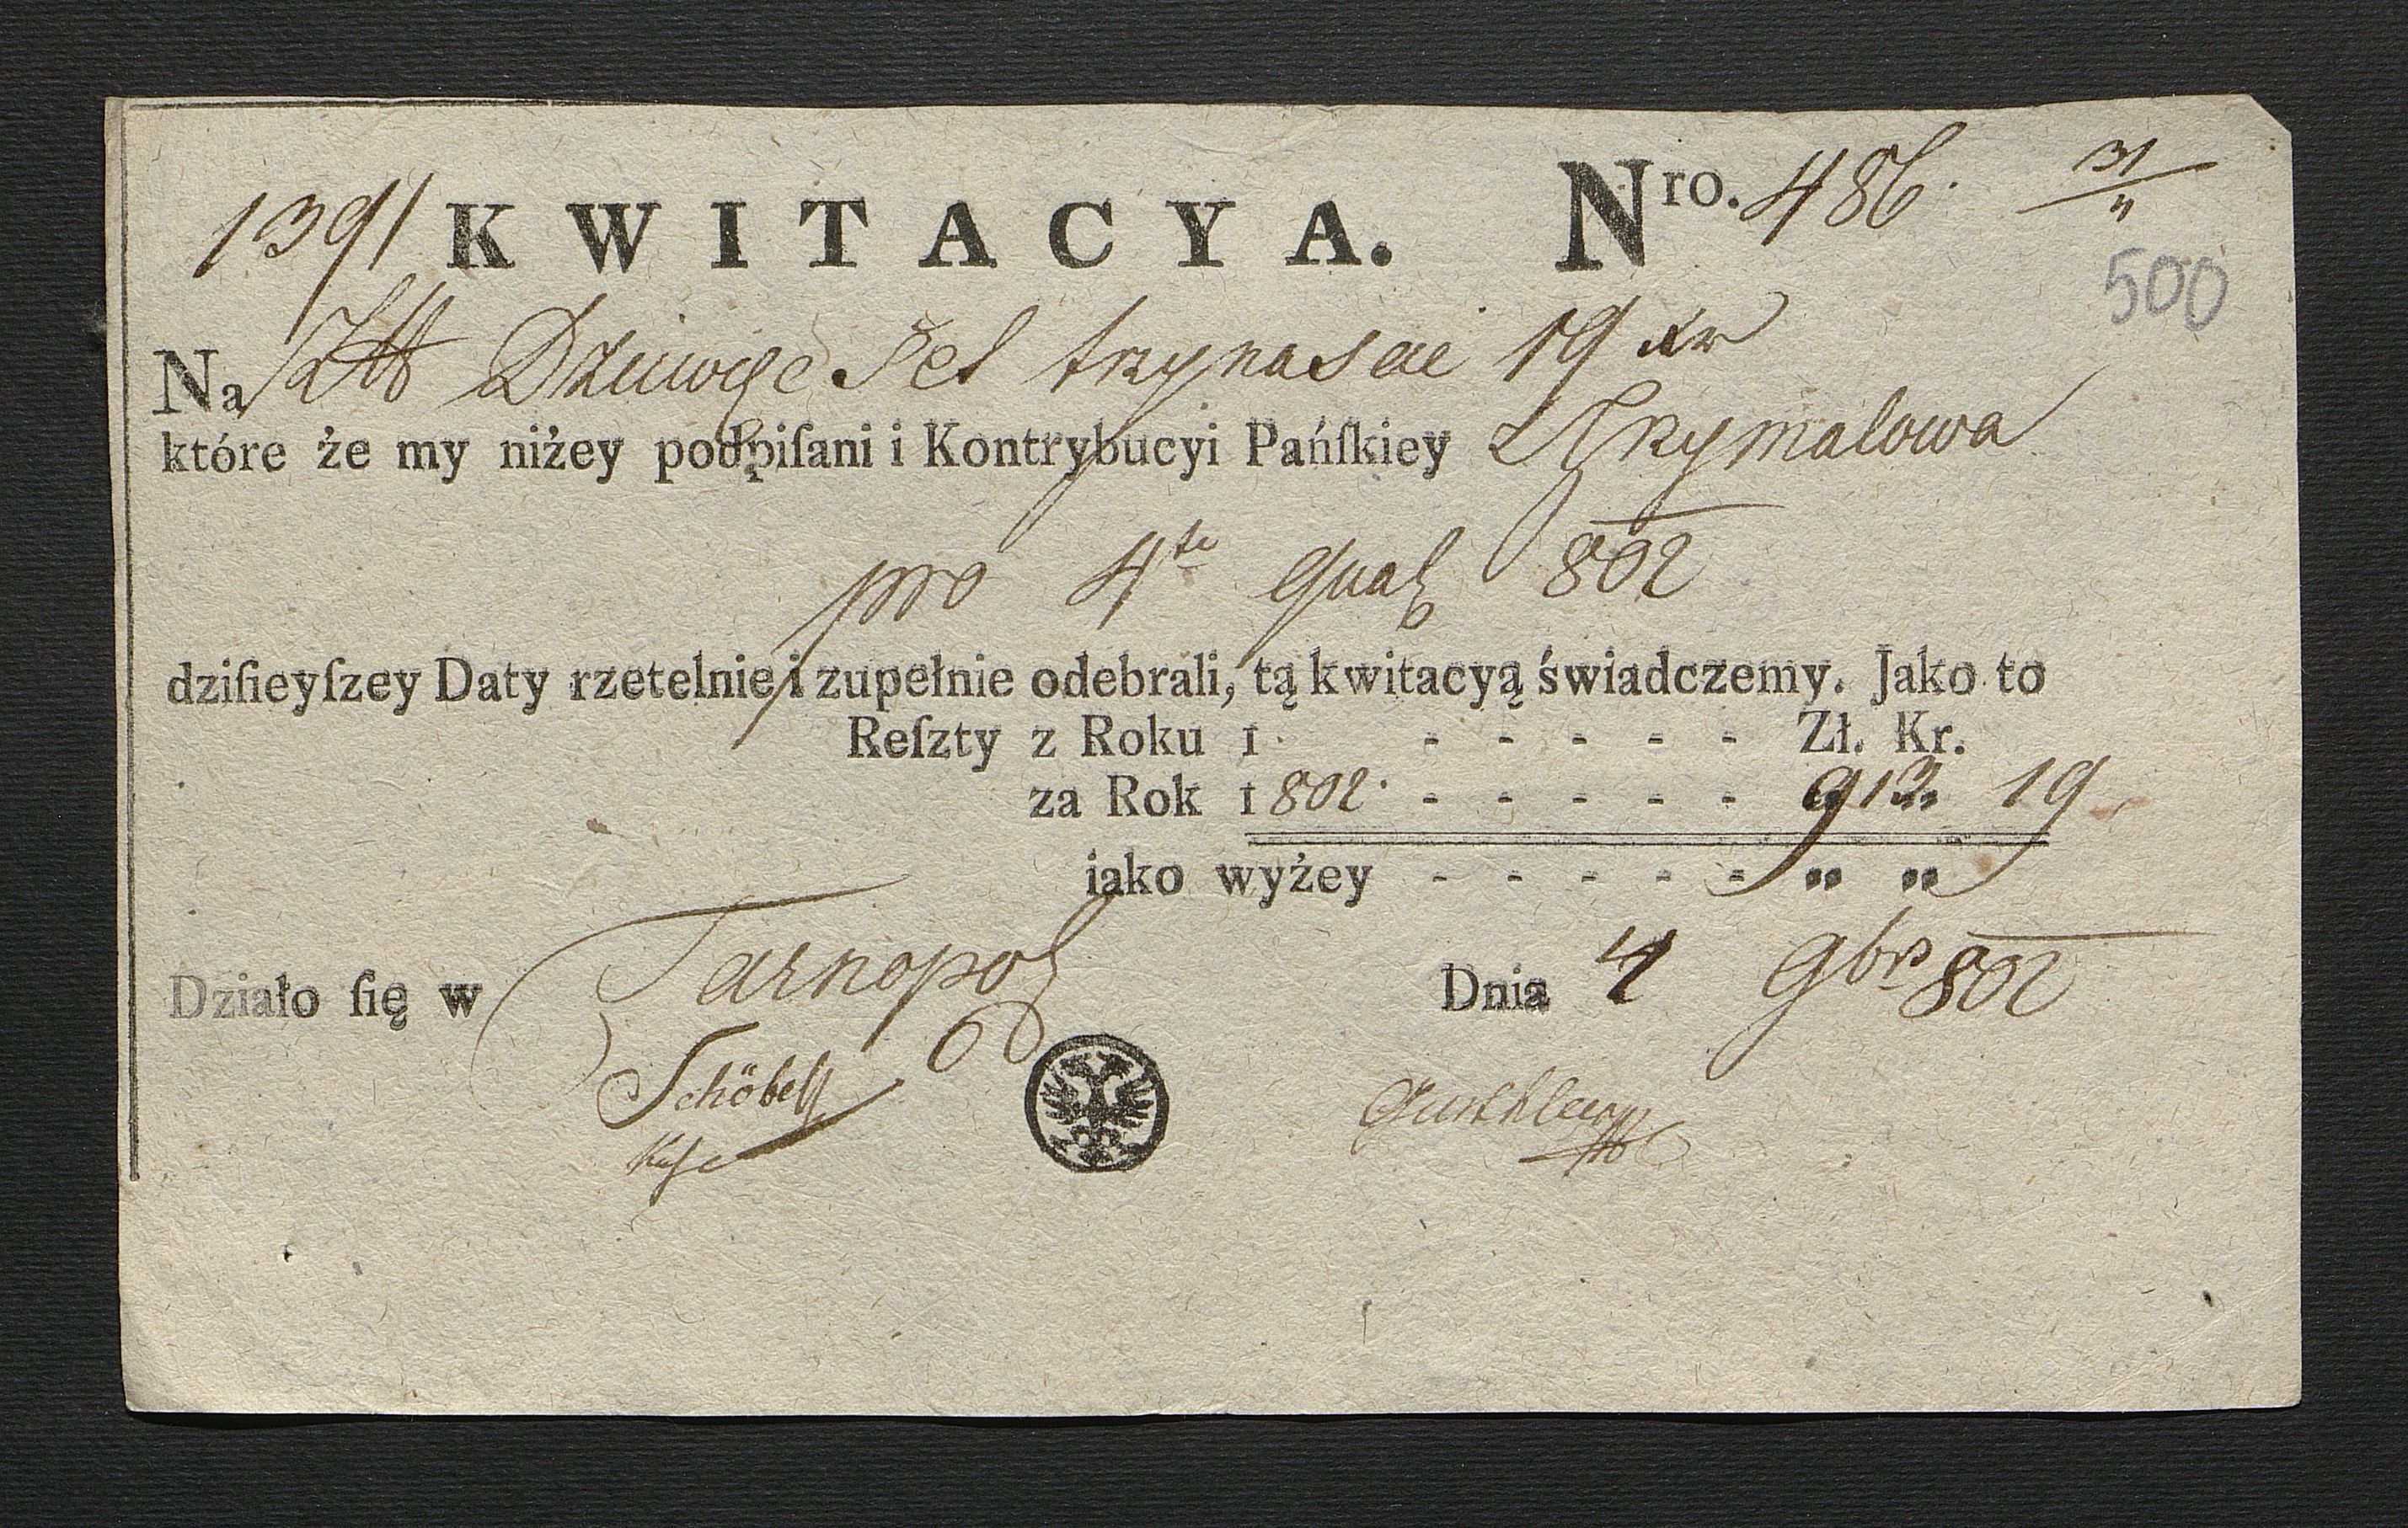 1391 KWITACYA. Nro. 486. 31
500
Na Dziwięc Set trzynascie 19 xr
które że my niżey podpiſani i Kontrybucyi Pańſkiey z Grzymalowa
pro 4te Quat 802
dziſieyſzey Daty rzetelnie i zupełnie odebrali, tą kwitacyą świadczemy. Jako to
Reſzty z Roku 1 - - - - - Zł. Kr.
za Rok 1802. - - - - - 913 19
iako wyżey - - - - - „ „
Działo ſię w Tarnopol Dnia 4 9br 802
Schöbel